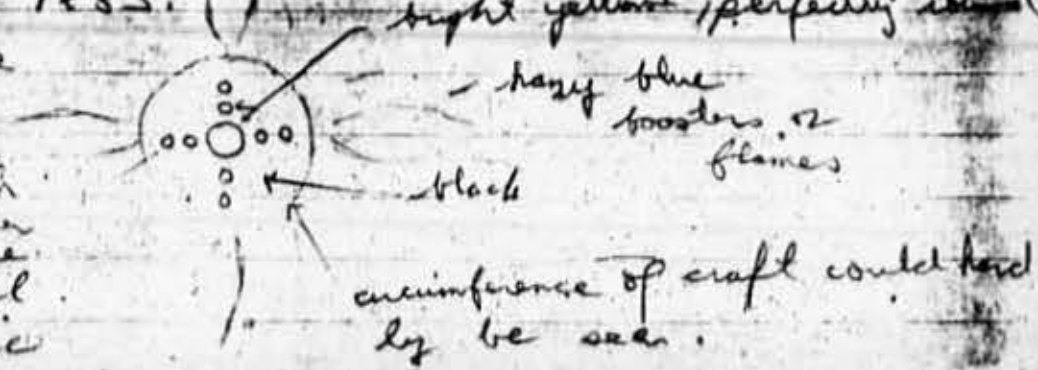 bright yellow, perfectly
hazy blue
boosters or
flames
black
circumference of craft could hard
ly be seen.